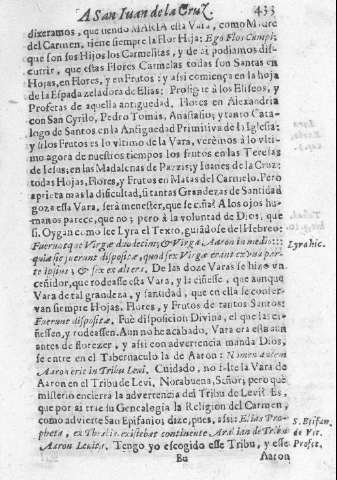 A San Juan de la Cruz. 433
dixeramos, que siendo MARIA esta Vara, como Madre
del Carmen, tiene siempre la Flor Hija: Ego Flos Campi;
que son sus Hijos los Carmelitas, y de aì podiamos dis-
currir, que estas Flores Carmelas todas son Santas en
Hojas, en Flores, y en Frutos: y assi comiença en la hoja
de la Espada zeladora de Elias: Prosigue à los Eliseos, y
Profetas de aquella antiguedad. Flores en Alexandria
con San Cyrilo, Pedro Tomàs, Anastasio; y tanto Cata-
logo de Santos en la Antiguedad Primitiva de la Iglesia:
y si los Frutos es lo vltimo de la Vara, verèmos à lo vlti-
mo agora de nuestros tiempos los frutos en las Teresas
de Jesus; en las Madalenas de Pazzis; y Juanes de la Cruz:
todas Hojas, Flores, y Frutos en Matas del Carmelo. Pero
aprieta mas la dificultad, si tantas Grandezas de Santidad
goza essa Vara, serà menester, que se ciña? A los ojos hu-
manos parece, que no; pero à la voluntad de Dios, que
si. Oygan como lee Lyra el Texto, guiado de el Hebreo:
Fueruntque Virgæ duodecim, & Virga Aaron in medio:
quia sic fuerunt dispositæ, quod sex Virgæ erant ex vna par-
te ipsius, & sex ex altera. De las doze Varas se hizo vn
Lyra hic.
ceñidor, que rodeasse esta Vara, y la ciñesse, que aunque
Vara de tal grandeza, y santidad, que en ella se conser-
van siempre Hojas, Flores, y Frutos de tantos Santos:
Fuerunt dispositæ. Fuè disposicion Divina, el que las ci-
ñessen, y rodeassen. Aun no he acabado. Vara era esta aun
antes de florezer, y assi con advertencia manda Dios,
se entre en el Tabernaculo la de Aaron: Nomen autem
Aaron erit in Tribu Levi. Cuidado, no falte la Vara de
Aaron en el Tribu de Levi. Norabuena, Señor; pero què
misterio encierra la advertencia del Tribu de Levi? Es,
que por aì trae su Genealogia la Religion del Carmen,
como advierte San Epifanio: dize, pues, assi: Elias Pro-
pheta, ex Thesbis existebat continente Arabian de Tribu
Aaron Levita. Tengo yo escogido esse Tribu, y esse
S. Epifan.
de Vit.
Profet.
Aaron